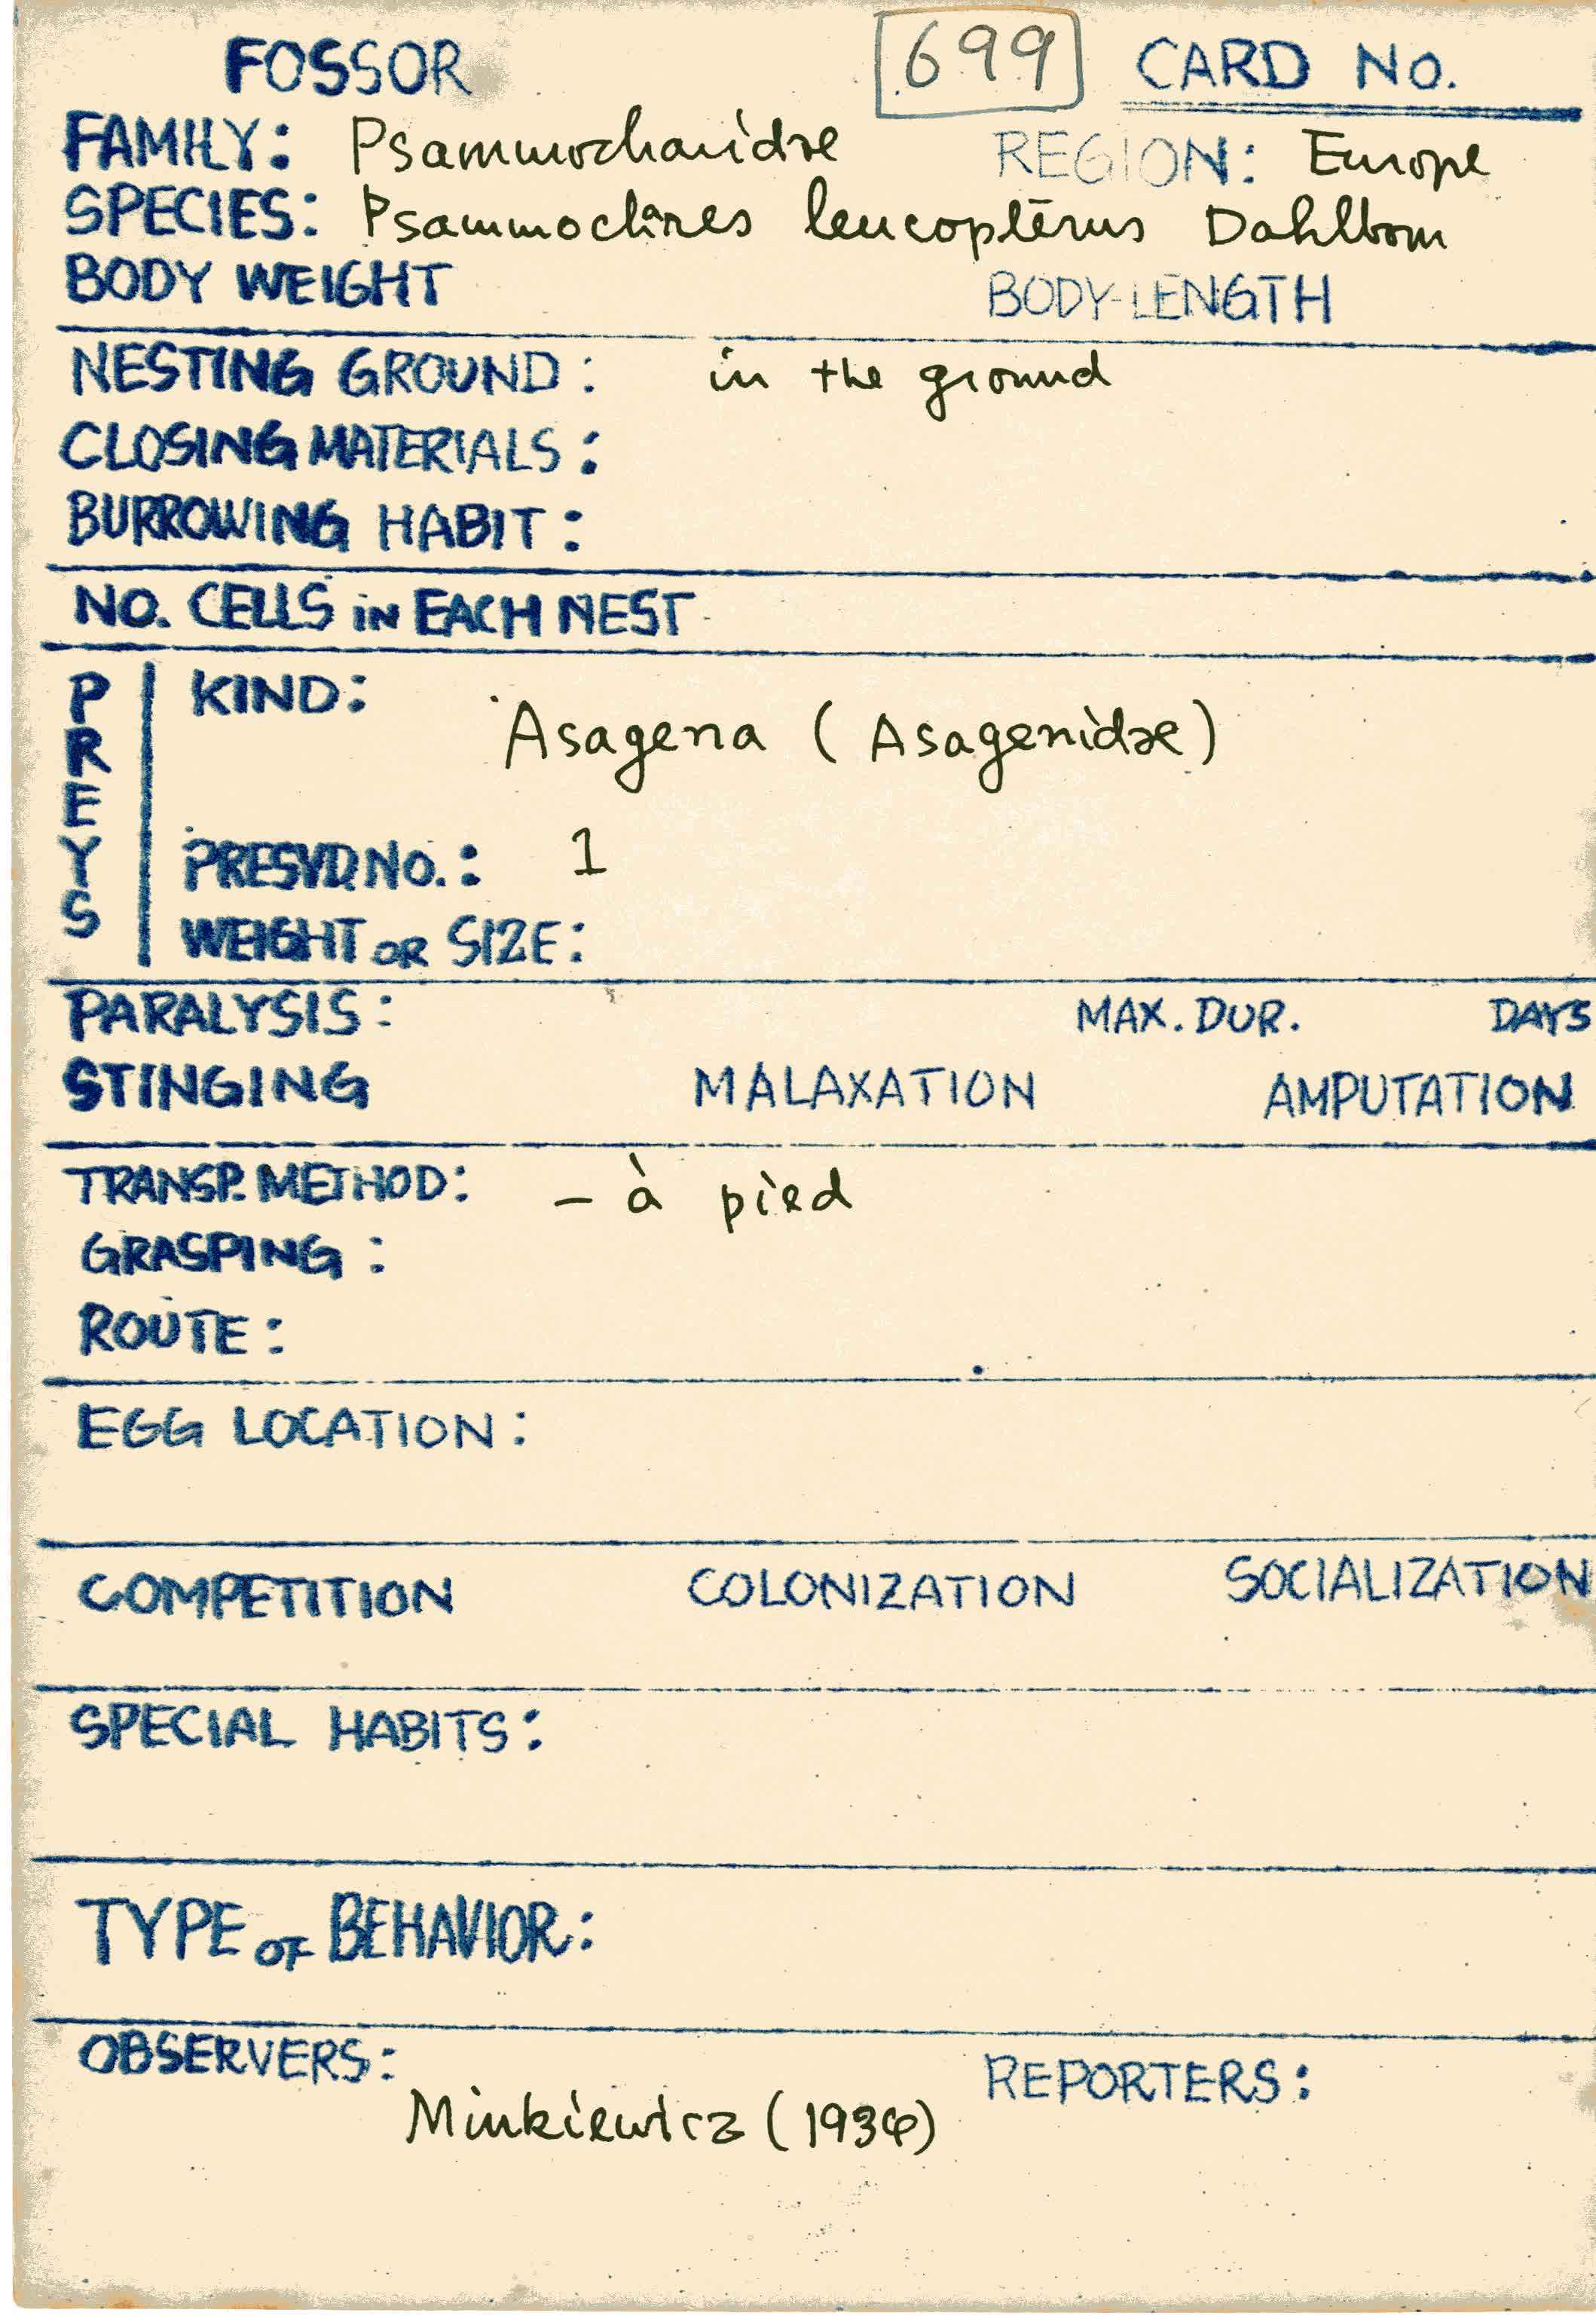 FOSSOR 699 CARD No.
FAMILY: Psammocharidae REGION: Europe
SPECIES: Psammochares leucopterus Dahlbom
BODY WEIGHT BODY-LENGTH
NESTING GROUND: in the ground
CLOSING MATERIALS:
BURROWING HABIT:
NO. CELLS iN EACH NEST
PREYS
KIND: Asagena (Asagenidae)
PRESVD NO.: 1
WEIGHT OR SIZE:
PARALYSIS: MAX. DUR. DAYS
STINGING MALAXATION AMPUTATION
TRANSP. METHOD: – à pied
GRASPING:
ROUTE:
EGG LOCATION:
COMPETITION COLONIZATION SOCIALIZATION
SPECIAL HABITS:
TYPE OF BEHAVIOR:
OBSERVERS: REPORTERS:
Minkiewicz